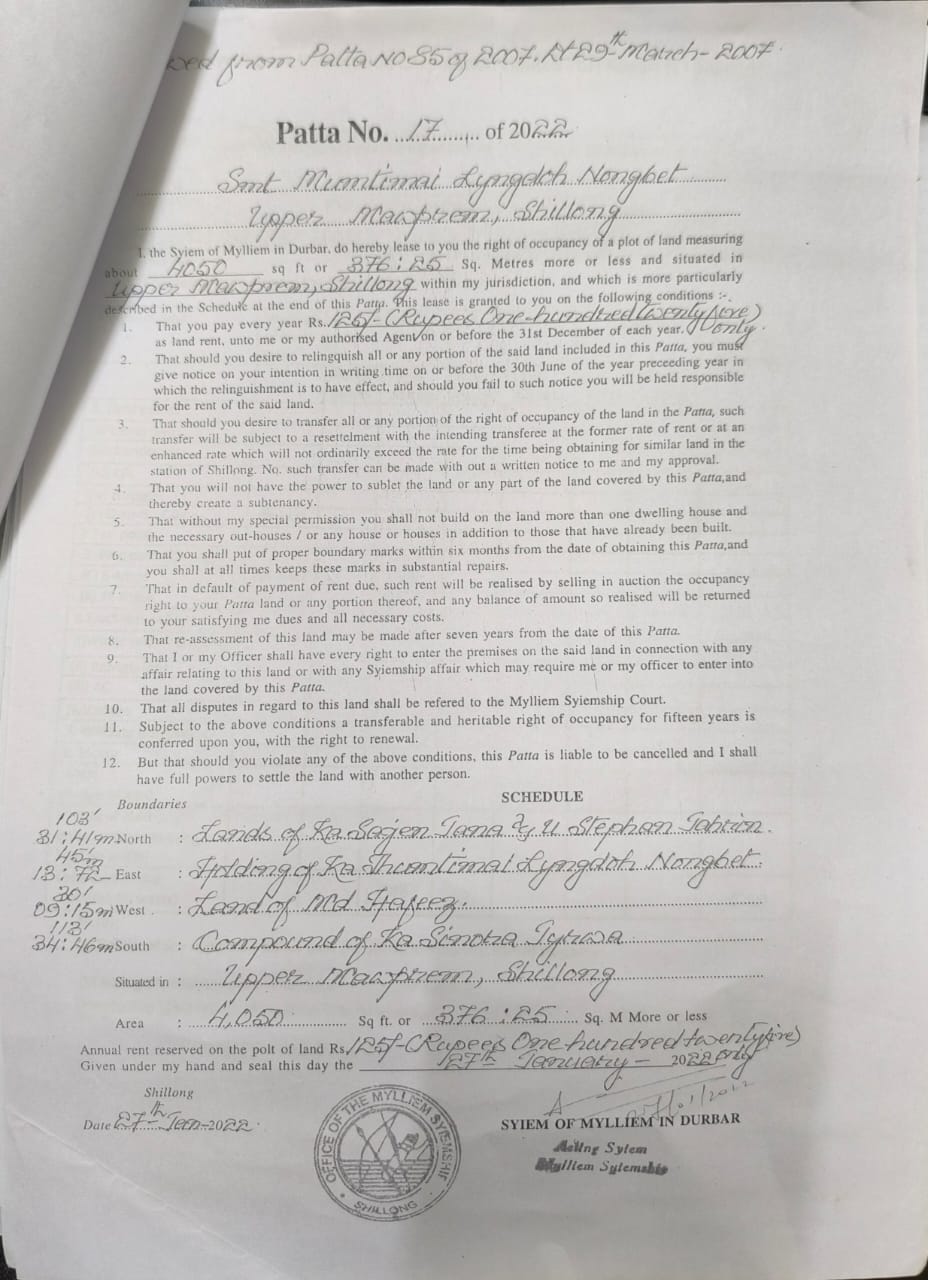 from Patta No 85 of 2007. Dt 29th March - 2007.
Patta No. 17 of 2022
Smt Mumtimai Lyngdoh Nongbet
Upper Mawprem, Shillong
I, the Syiem of Mylliem in Durbar, do hereby lease to you the right of occupancy of a plot of land measuring
about 4050 sq ft or 376:25 Sq. Metres more or less and situated in
Upper Mawprem, Shillong within my jurisdiction, and which is more particularly
described in the Schedule at the end of this Patta. This lease is granted to you on the following conditions :-
1. That you pay every year Rs. 125/- (Rupees One hundred twenty five)
as land rent, unto me or my authorised Agent on or before the 31st December of each year. only.
2. That should you desire to relingquish all or any portion of the said land included in this Patta, you must
give notice on your intention in writing time on or before the 30th June of the year preceeding year in
which the relinguishment is to have effect, and should you fail to such notice you will be held responsible
for the rent of the said land.
3. That should you desire to transfer all or any portion of the right of occupancy of the land in the Patta, such
transfer will be subject to a resettelment with the intending transferee at the former rate of rent or at an
enhanced rate which will not ordinarily exceed the rate for the time being obtaining for similar land in the
station of Shillong. No. such transfer can be made with out a written notice to me and my approval.
4. That you will not have the power to sublet the land or any part of the land covered by this Patta,and
thereby create a subtenancy.
5. That without my special permission you shall not build on the land more than one dwelling house and
the necessary out-houses / or any house or houses in addition to those that have already been built.
6. That you shall put of proper boundary marks within six months from the date of obtaining this Patta,and
you shall at all times keeps these marks in substantial repairs.
7. That in default of payment of rent due, such rent will be realised by selling in auction the occupancy
right to your Patta land or any portion thereof, and any balance of amount so realised will be returned
to your satisfying me dues and all necessary costs.
8. That re-assessment of this land may be made after seven years from the date of this Patta.
9. That I or my Officer shall have every right to enter the premises on the said land in connection with any
affair relating to this land or with any Syiemship affair which may require me or my officer to enter into
the land covered by this Patta.
10. That all disputes in regard to this land shall be refered to the Mylliem Syiemship Court.
11. Subject to the above conditions a transferable and heritable right of occupancy for fifteen years is
conferred upon you, with the right to renewal.
12. But that should you violate any of the above conditions, this Patta is liable to be cancelled and I shall
have full powers to settle the land with another person.
SCHEDULE
Boundaries
103'
31:41m North : Lands of Ka Sajen Tana & U Stephan
45'm
13:72 East : Holding of Ka Lyngdoh Nongbet.
30'
09:15m West : Land of Md Hafeez.
113'
34:46m South : Compound of Ka Sinora Tyrwa
Situated in : Upper Mawprem, Shillong
Area : 4,050 Sq ft. or 376:25 Sq. M More or less
Annual rent reserved on the polt of land Rs. 125/- (Rupees One hundred twenty five)
Given under my hand and seal this day the 27th January - 2022 only
Shillong
Date 27th Jan-2022.
27/01/2022
SYIEM OF MYLLIEM IN DURBAR
Acting Syiem
Mylliem Syiemship
OFFICE OF THE MYLLIEM SYIEMSHIP
SHILLONG